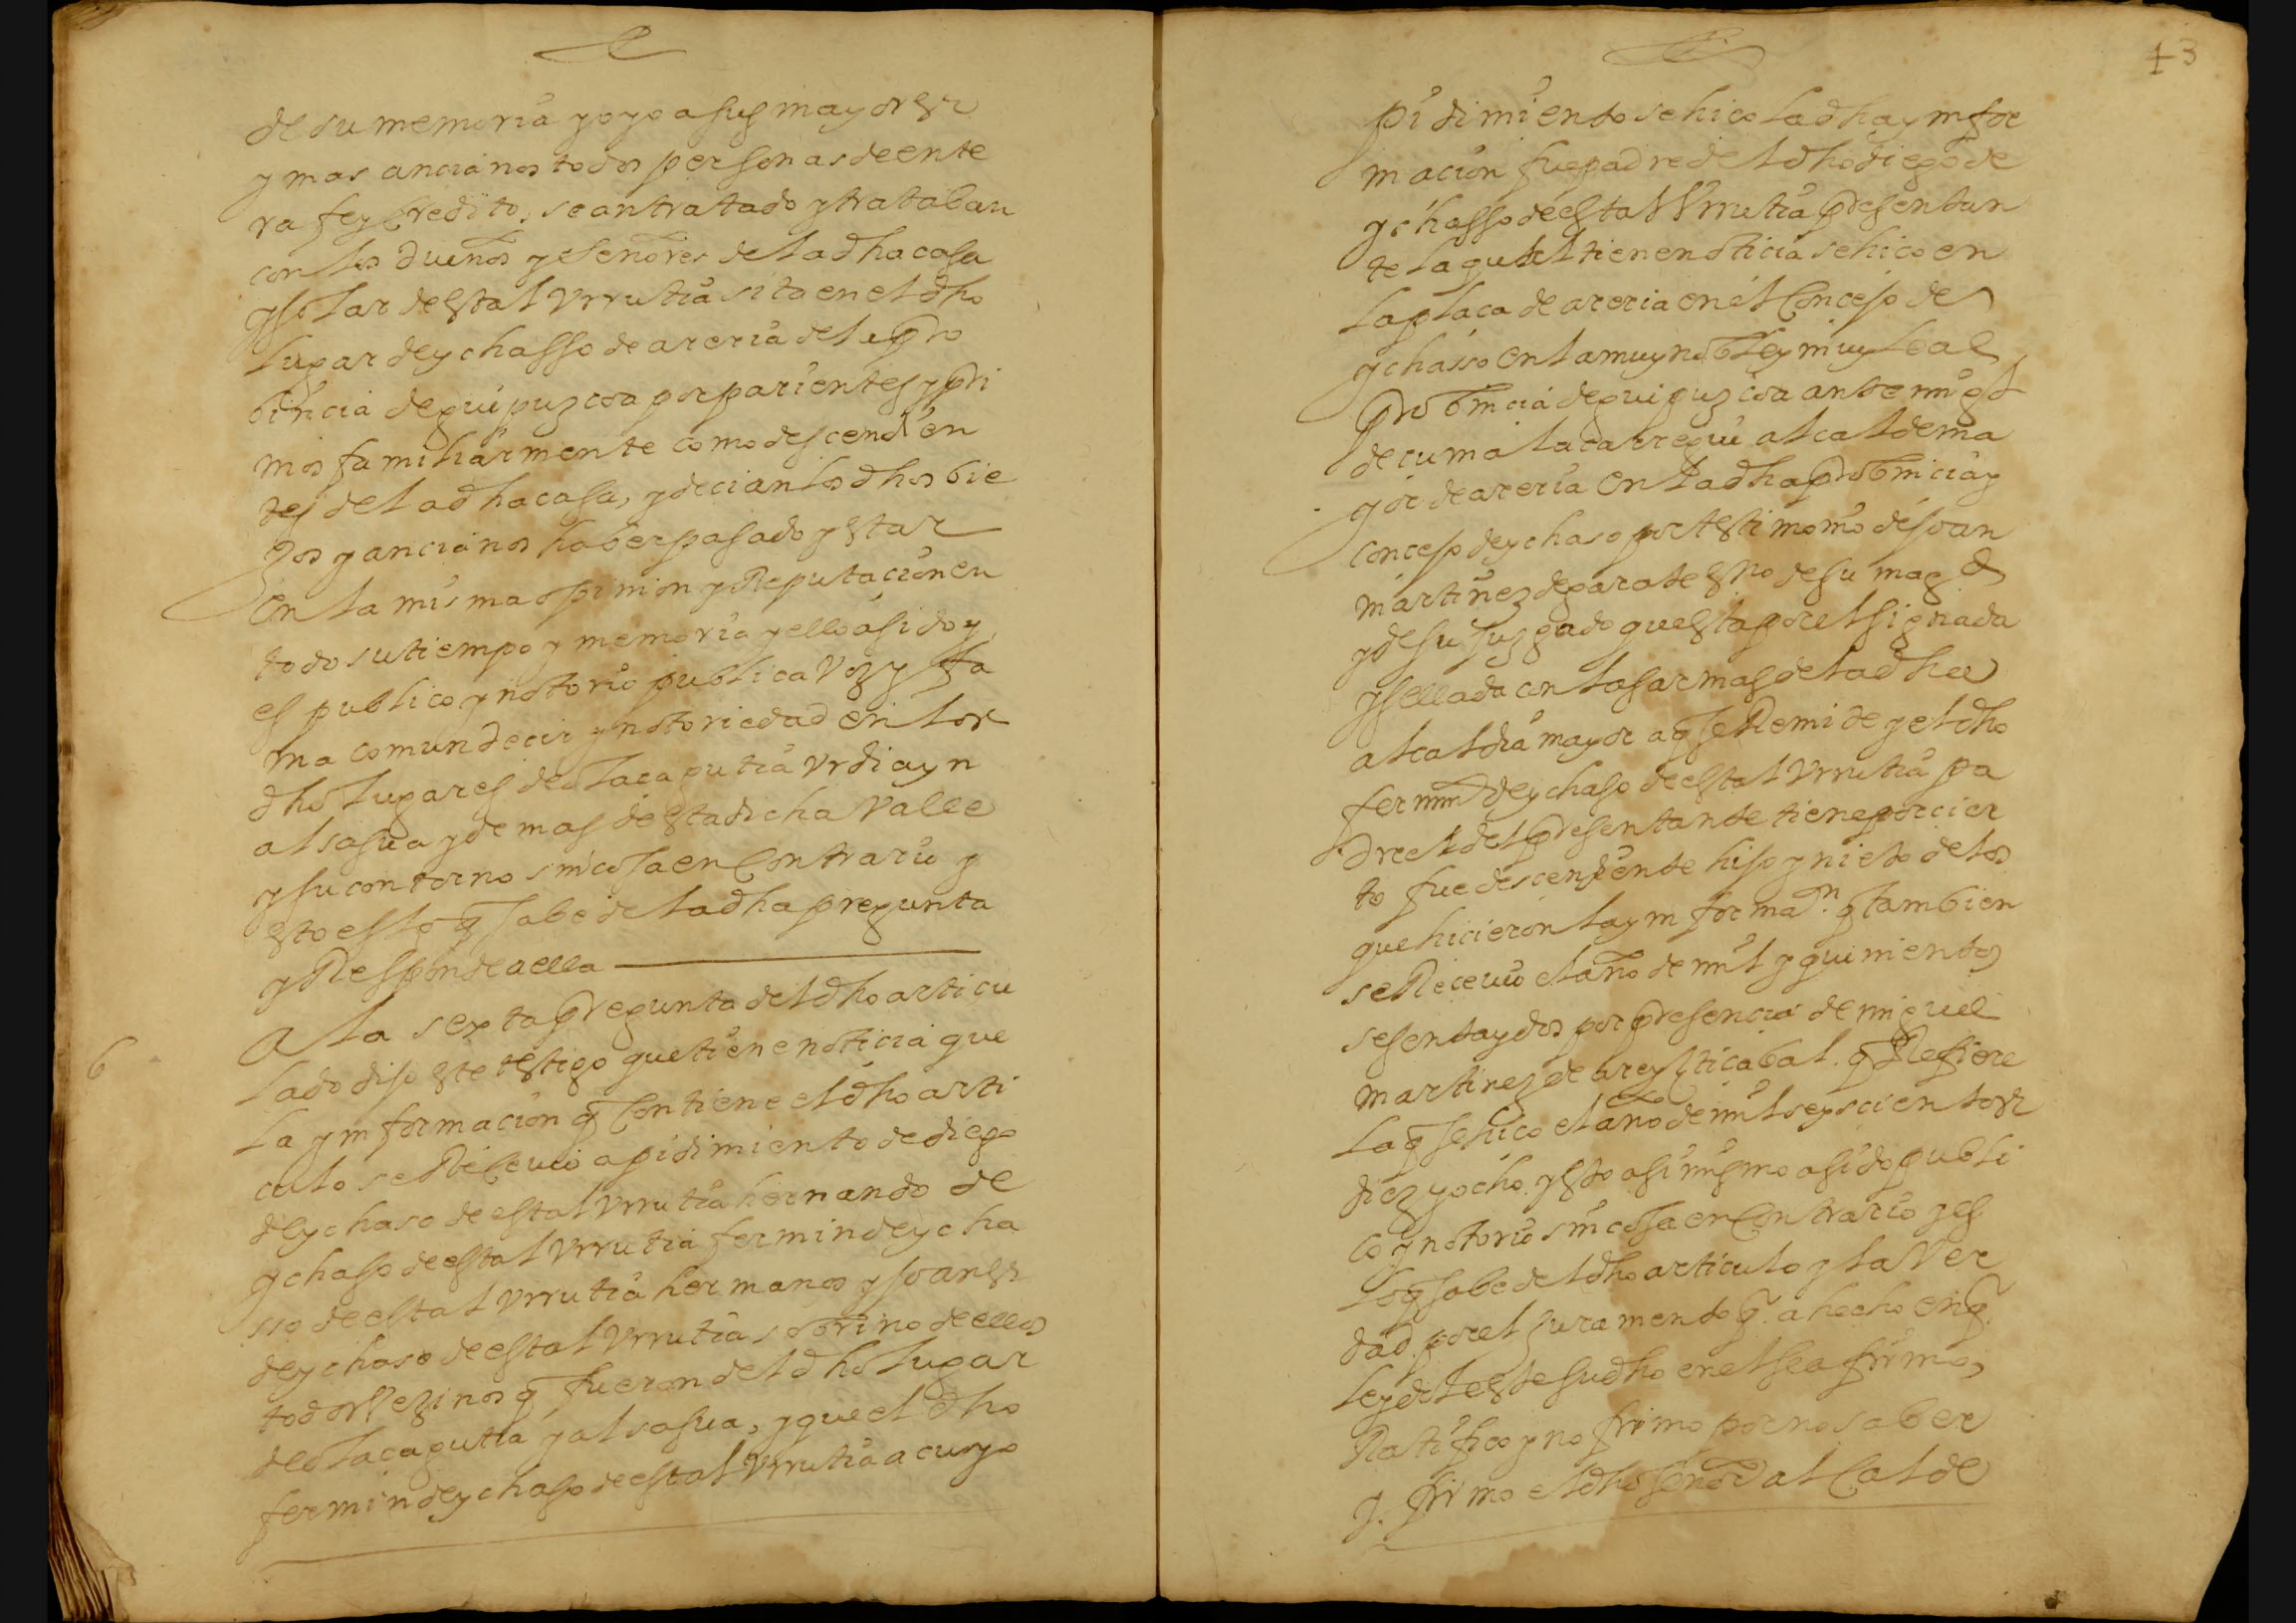 de su memoria y oyo a sus mayores
y mas ancianos todos personas de ente
ra fe y credito, se an tratado y trataban
con los dueños y señores de la dha casa
y solar de estal Vrrutia sita en el dho
lugar de ychasso de areria de la pro
bincia de guipuzcoa por parientes y pri
mos familiarmente como descendien
tes de la dha casa, y decian los dhos bie
jos y ancianos haber pasado y estar
en la misma opinion y Reputacion en
todo su tiempo y memoria y ello a sido y
es publico y notorio publica voz y fa
ma comun decir y notoriedad en los
dhos lugares de olacagutia Vrdiayn
alsasua y demas de esta dicha Valle
y su contorno sin cosa en Contrario y
esto es lo q sabe de la dha pregunta
y Responde a ella
6
A la sexta pregunta del dho articu
lado dijo este testigo que tiene noticia que
la ynformacion q Contiene el dho arti
culo se Recevio a pidimiento de diego
de ychaso de estal Vrrutia hernando de
ychaso de estal Vrrutia fermin de ycha
sso de estal Vrrutia hermanos y joanes
de ychaso de estal Vrrutia sobrino de ellos
todos Vezinos q fueron del dho lugar
de olacagutia y alsasua, y que el dho
fermin de ychaso de estal Vrrutia a cuyo
43
pidimiento se hico la dha ynfor
macion fue padre del dho diego de
ychasso de estal Vrrutia presentan
te la qual tiene noticia se hico en
la placa de areria en el Concejo de
ychasso en la muy noble y muy leal
Probincia de guipuzcoa ante migl
de cumalacarregui alcalde ma
yor de areria en la dha probincia y
concejo de ychaso por testimonio de joan
martinez de garate esno de su magd
y de su Juzgado que esta por el signada
y sellada con las armas de la dha
alcaldia mayor a q se Remite y el dho
fermin de ychaso de estal Vrrutia pa
dre del presentante tiene por cier
to fue descendiente hijo y nieto de los
que hicieron la ynformaon. q tambien
se Recevio el año de mil y quinientos
sesenta y dos por presencia de miguel
martinez de areysticabal. q Refiere
la q se hico el año de mil seyscientos
diez y ocho. y esto asi mismo a sido publi
co y notorio sin cosa en Contrario y es
lo q sabe del dho articulo y la Ver
dad por el Juramento q. a hecho en q.
leydole este su dho en el se afirmo,
Ratifico y no firmo por no saber
y. firmo el dho señor alcalde